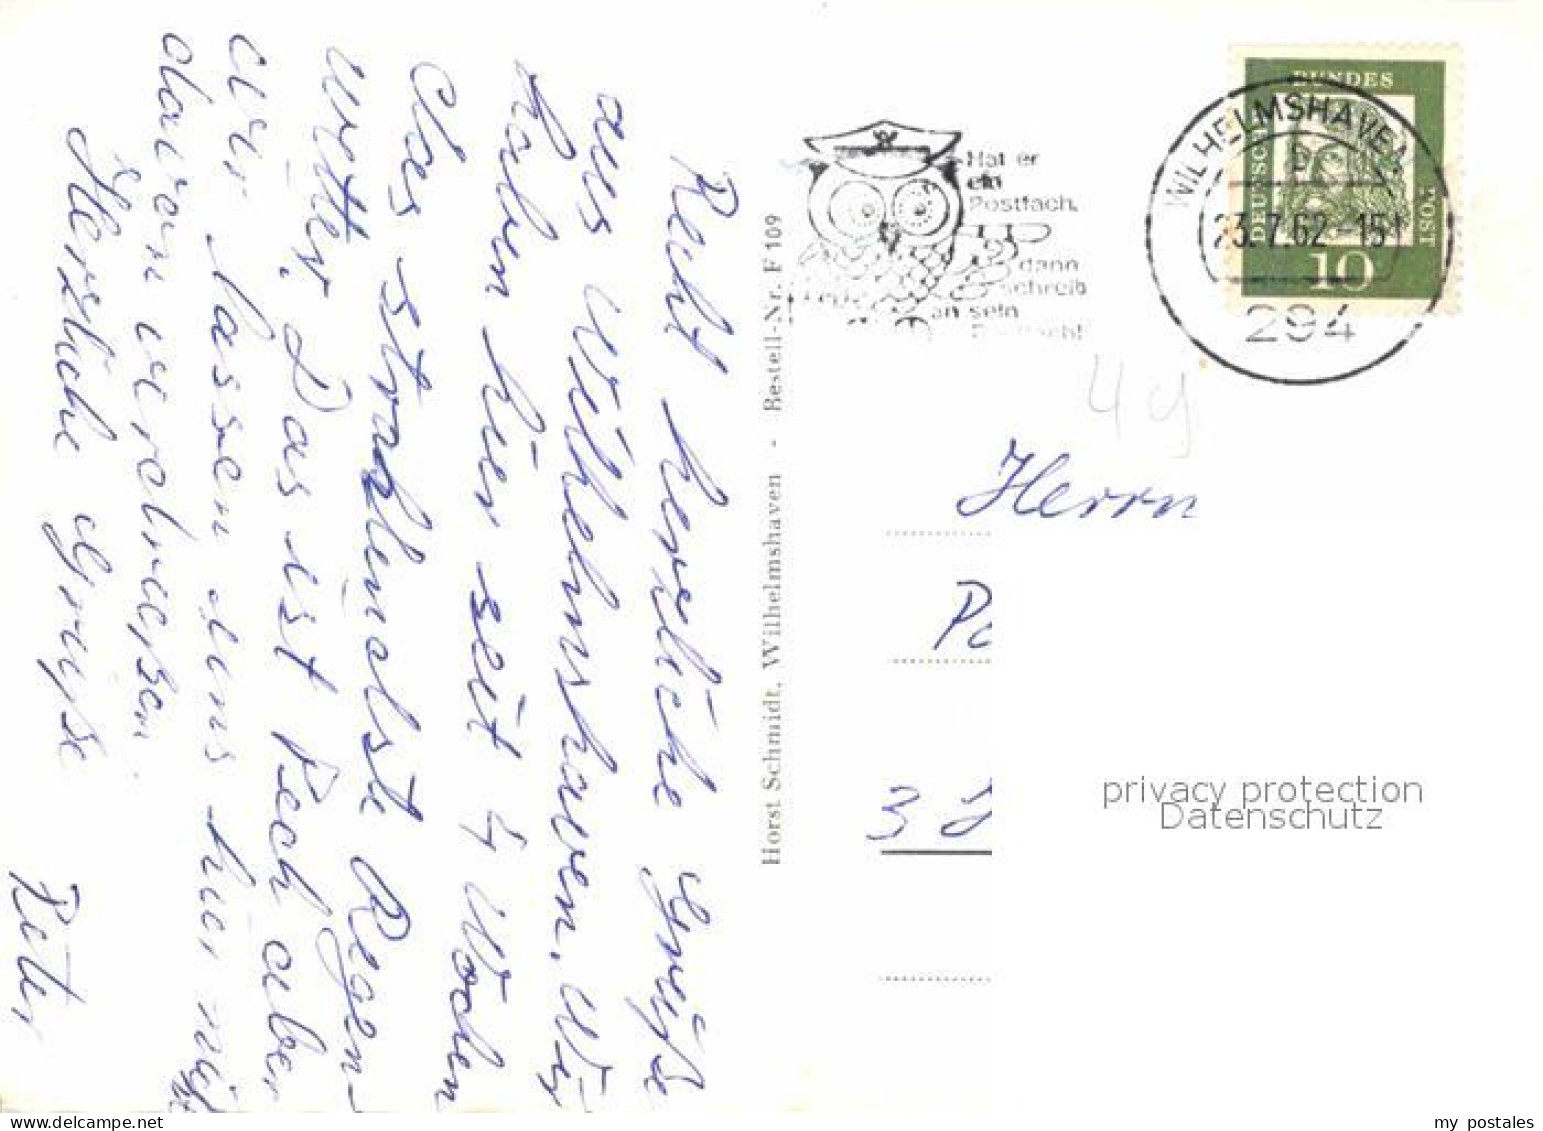 Recht herzliche Grüße
aus Wilhelmshaven. Wir
haben hier seit 4 Wochen
das strahlendste Regen-
wetter. Das ist Pech aber
wir lassen uns hier nicht
davon verdrießen.
Herzliche Grüße
Peter
Horst Schmidt, Wilhelmshaven - Bestell-Nr. F 109
Hat er
ein
Postfach,
dann
schreib
an sein
Postfach!
DEUTSCHE BUNDES POST
10
WILHELMSHAVEN
23.7.62-15
294
49
Herrn
3
privacy protection
Datenschutz
my postales